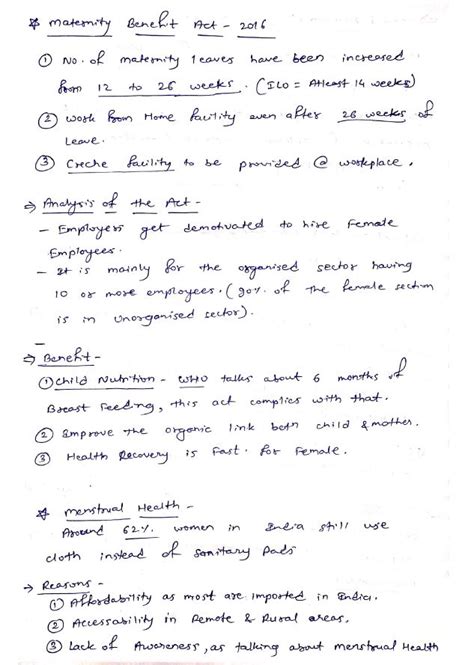 * Maternity Benefit Act - 2016
① No. of maternity leaves have been increased
from 12 to 26 weeks. (ILO = Atleast 14 weeks)
② Work from Home facility even after 26 weeks of
Leave.
③ Creche facility to be provided @ workplace.
⇒ Analysis of the Act -
- Employers get demotivated to hire Female
Employees.
- It is mainly for the organised sector having
10 or more employees. (90% of the female section
is in unorganised sector).
⇒ Benefit -
① Child Nutrition - WHO talks about 6 months of
Breast Feeding, this act complies with that.
② Improve the organic link both child & mother.
③ Health Recovery is Fast for Female.
* Menstrual Health -
Around 62% women in India still use
cloth instead of Sanitary Pads
→ Reasons -
① Affordability as most are imported in India.
② Accessability in Remote & Rural areas.
③ Lack of Awareness, as talking about menstrual Health